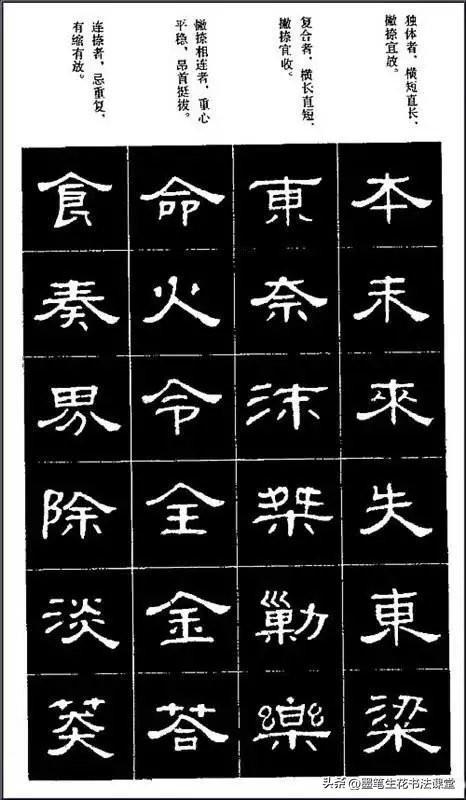 独体者，横短直长，
撇捺宜放。
复合者，横长直短，
撇捺宜收。
撇捺相连者，重心
平稳，昂首挺拔。
连捺者，忌重复，
有缩有放。
本未來失東梁
東奈沫桀勦樂
命火令全金荅
食奏界除淡
头条 @墨笔生花书法课堂